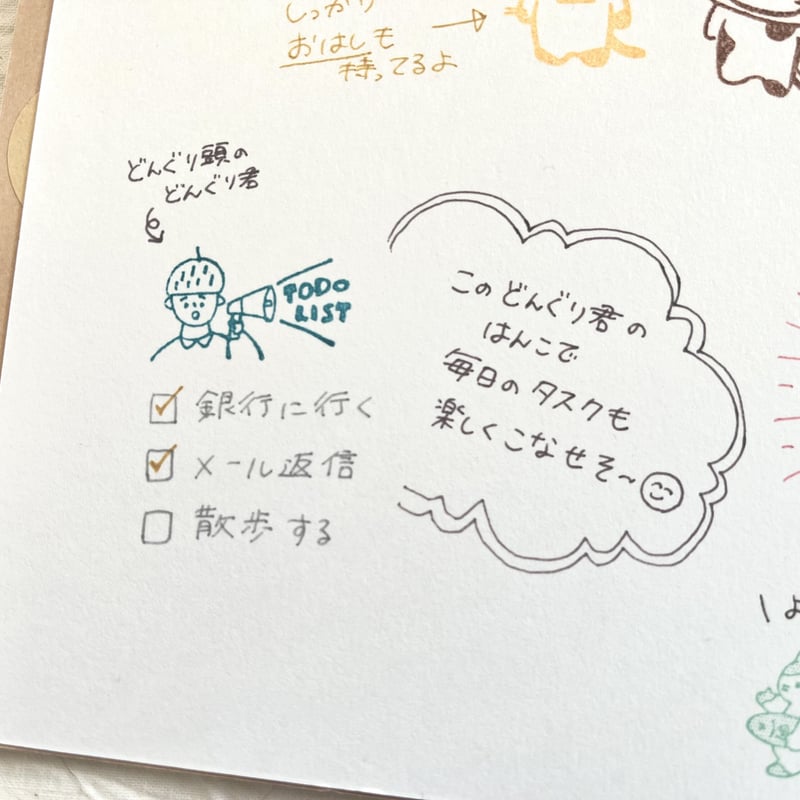 しっかり
おはしも
持ってるよ
どんぐり頭の
どんぐり君
TODO
LIST
銀行に行く
メール返信
散歩する
このどんぐり君の
はんこで
毎日のタスクも
楽しくこなせそ〜